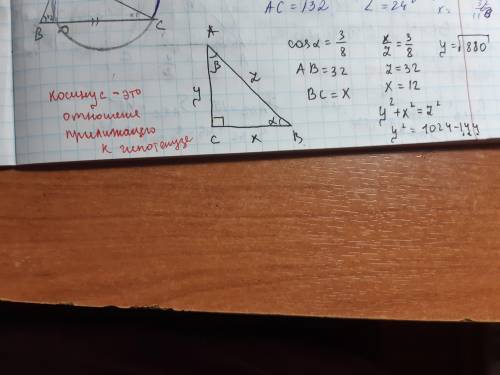 AC = 132
B
D
C
косинус - это
отношение
прилижащего
к гипотенузе
A
β
y
z
C
x
α
B
cosα = 3/8
AB = 32
BC = x
x/z = 3/8
z = 32
x = 12
y² + x² = z²
y² = 1024 - 144
y = √880